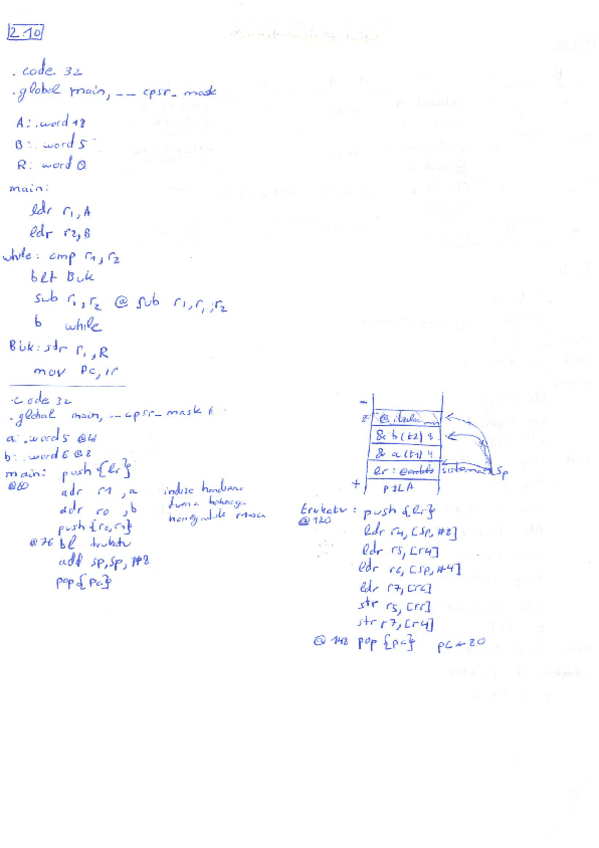 2.10
.code 32
.global main, __cpsr_mask
A: .word 18
B: .word 5
R: word 0
main:
ldr r1, A
ldr r2, B
while: cmp r1, r2
blt Buk
sub r1, r2 @ sub r1, r1, r2
b while
Buk: str r1, R
mov pc, lr
.code 32
.global main, __cpsr_mask
a: .word 5 @4
b: .word 6 @8
main: push {lr}
adr r1, a
adr r0, b
push {r0, r1}
@76 bl trukatu
add sp, sp, #8
pop {pc}
indize
-
& b
& a
lr: sistema
sp
+
PILA
trukatu: push {lr}
@120
ldr r4, [sp, #8]
ldr r5, [r4]
ldr r6, [sp, #4]
ldr r7, [r6]
str r5, [r6]
str r7, [r4]
@ 148 pop {pc} pc ← 80